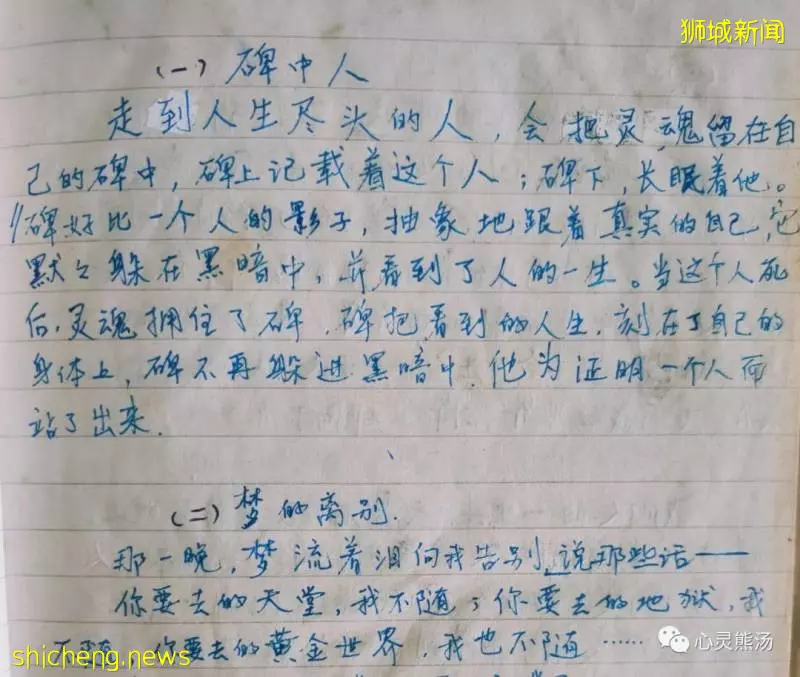 狮城新闻
(一) 碑中人
走到人生尽头的人，会把灵魂留在自
己的碑中，碑上记载着这个人；碑下，长眠着他。
碑好比一个人的影子，抽象地跟着真实的自己，它
默々躲在黑暗中，并看到了人的一生。当这个人死
后，灵魂拥住了碑，碑把看到的人生，刻在了自己的
身体上，碑不再躲进黑暗中，他为证明一个人而
站了出来.
(二) 梦的离别.
那一晚，梦流着泪向我告别，说那些话——
你要去的天堂，我不随；你要去的地狱，我
不随，你要去的黄金世界，我也不随……
心灵熊汤
shicheng.news